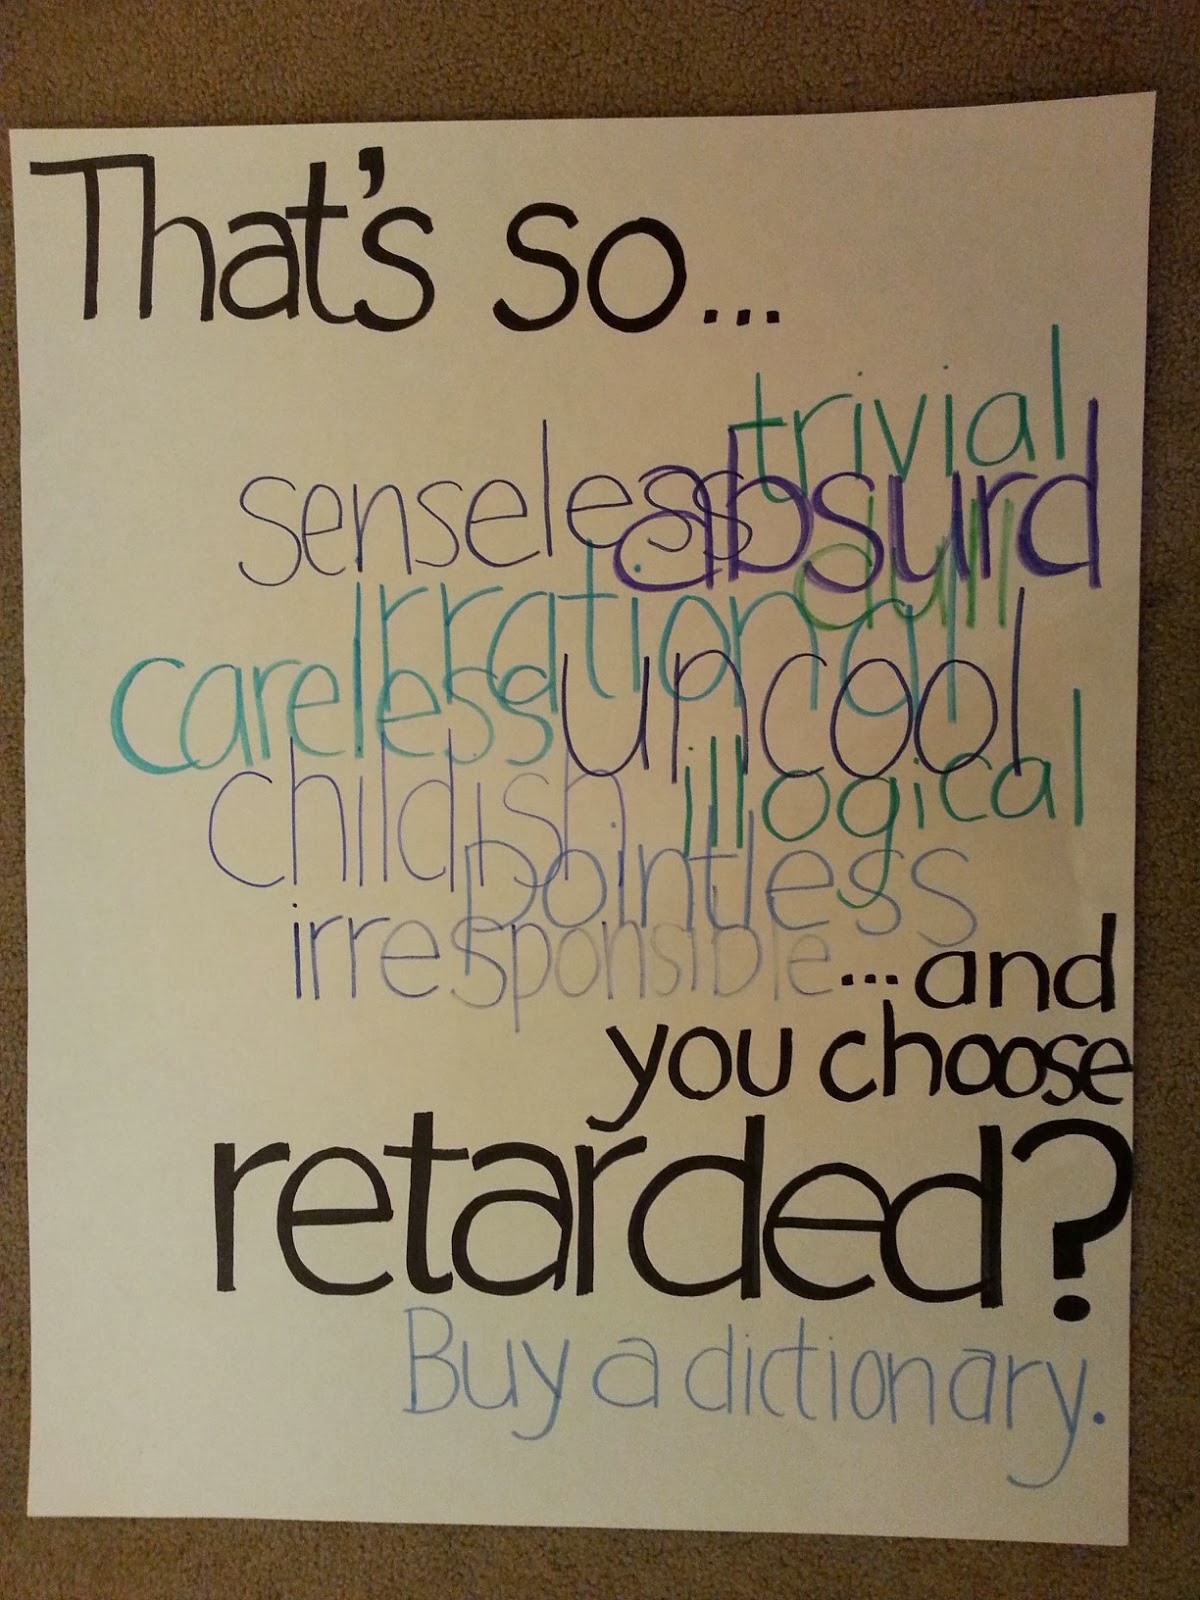 That's so...
trivial
senseless absurd
dull
irrational
careless uncool
childish illogical
pointless
irresponsible ...and
you choose
retarded?
Buy a dictionary.